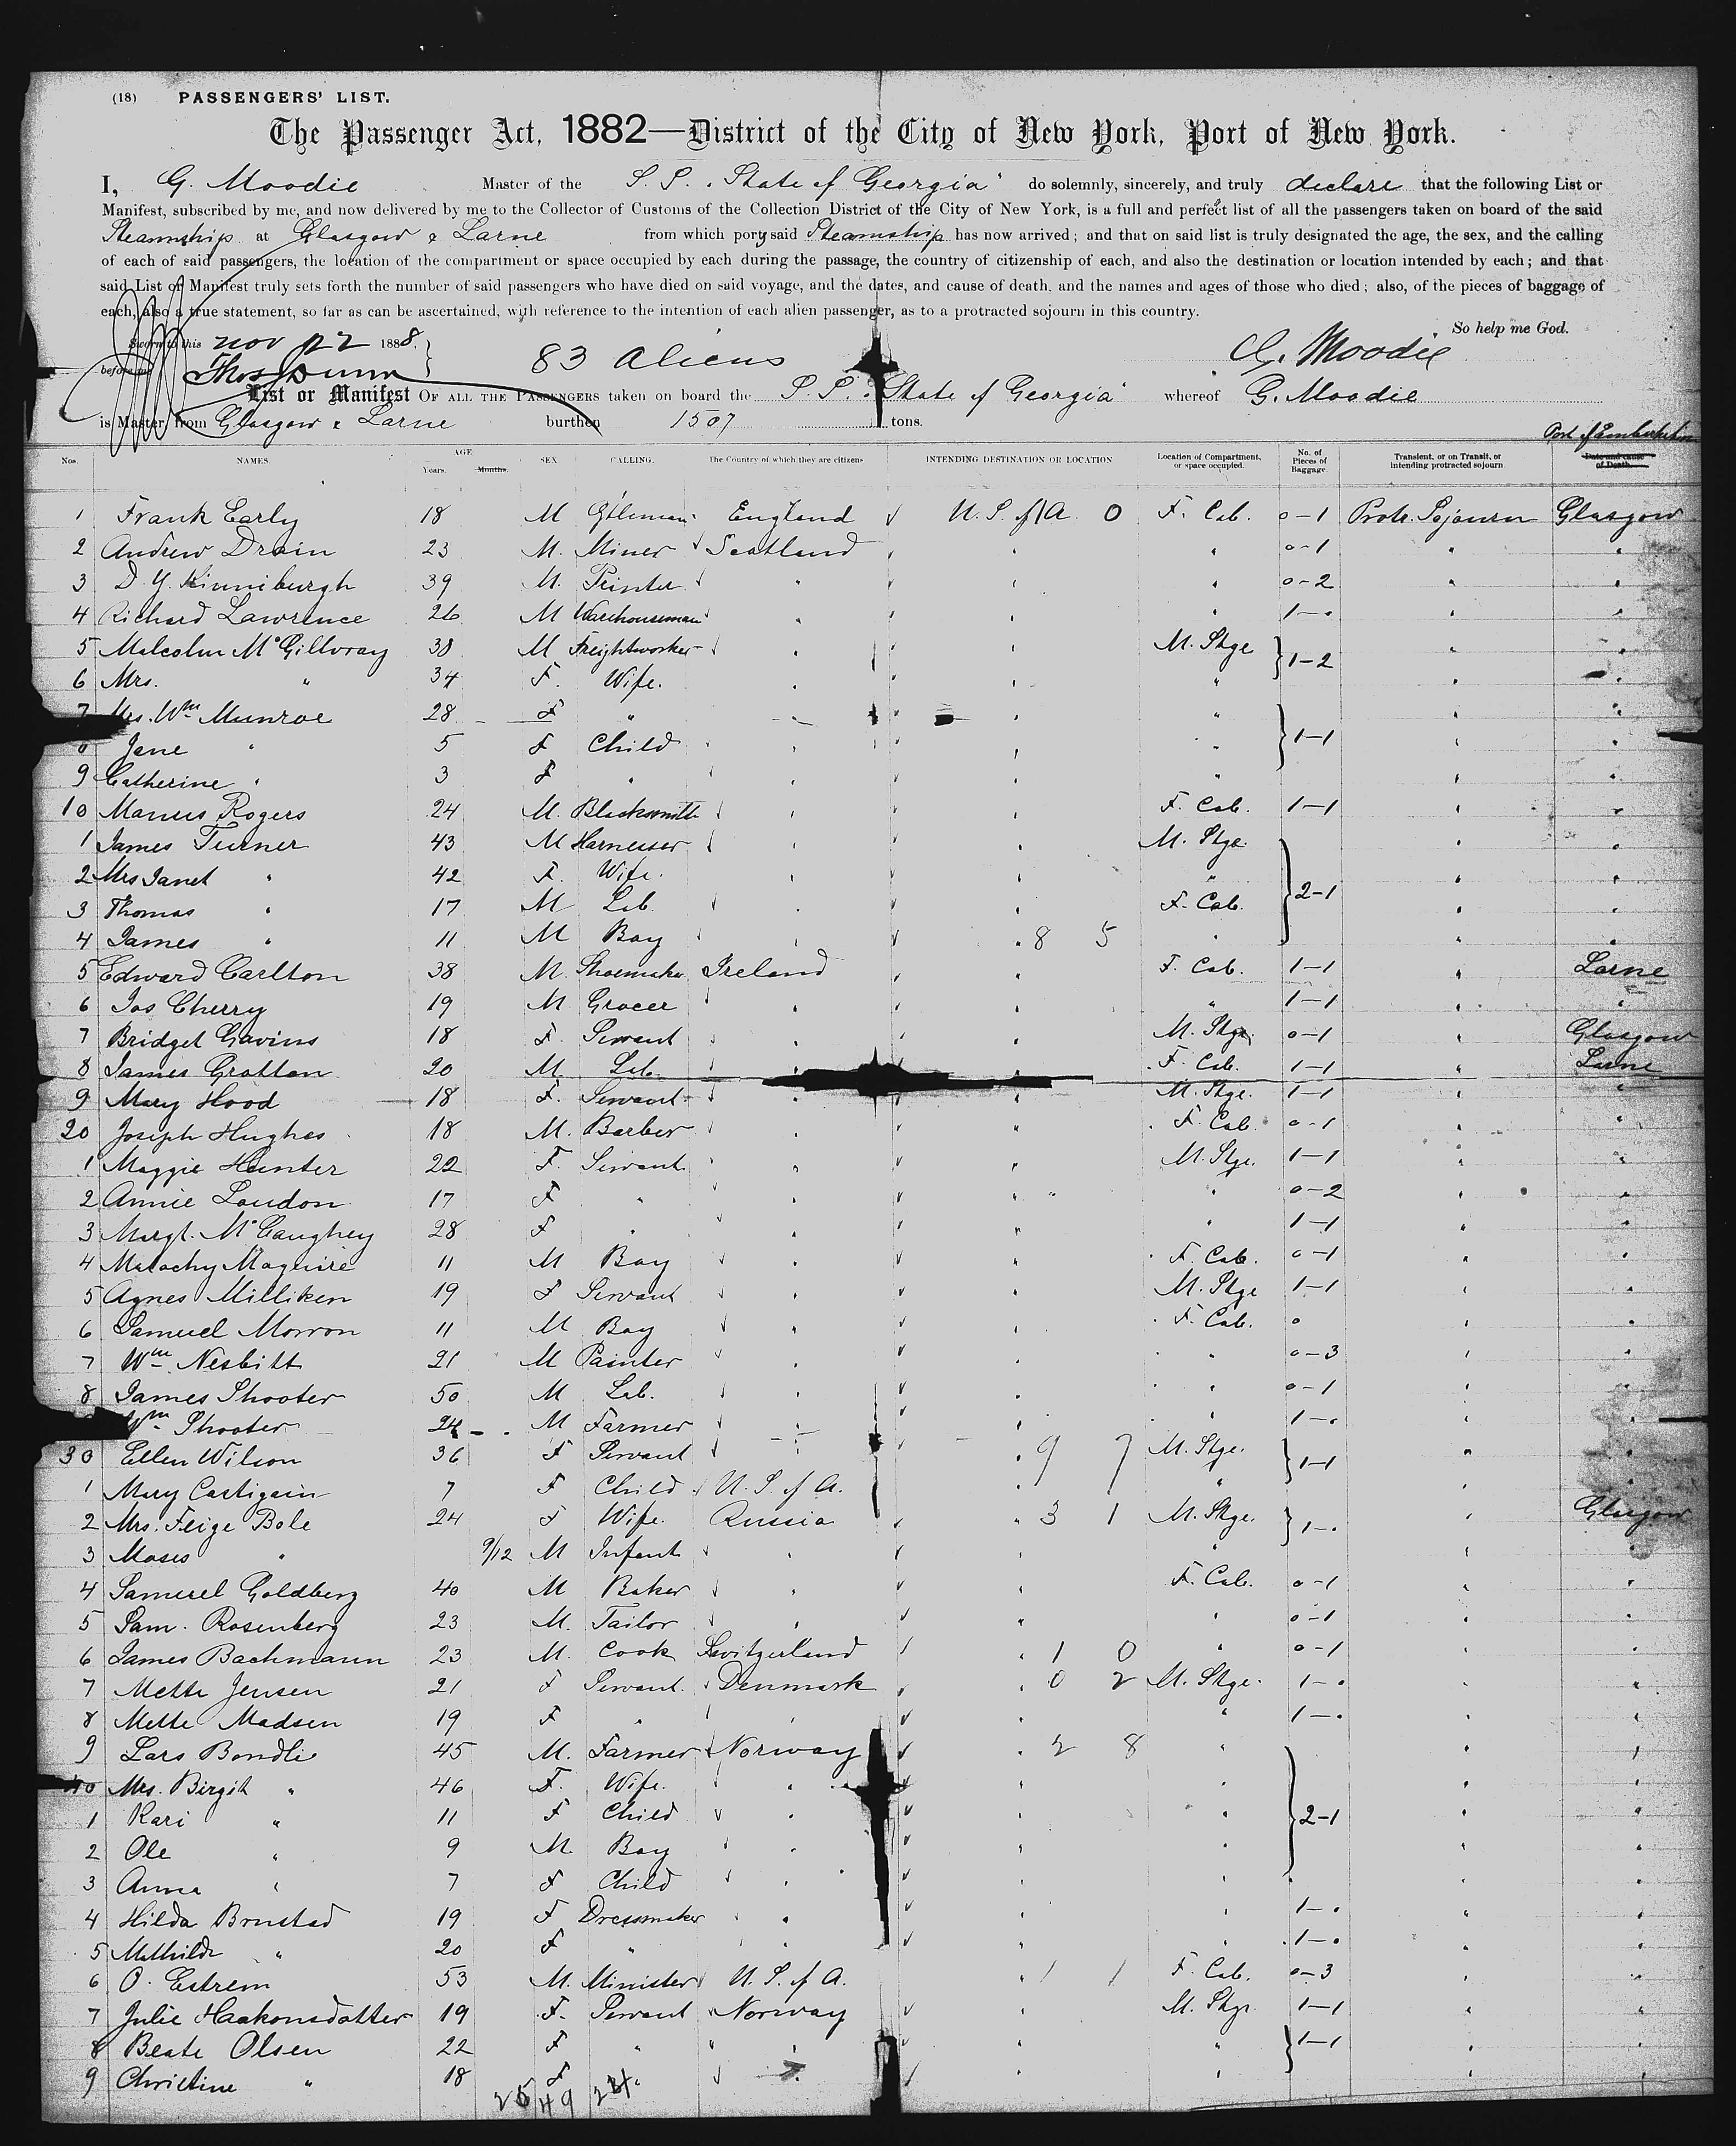 (18) PASSENGERS' LIST.
The Passenger Act, 1882—District of the City of New York, Port of New York.
I, G. Moodie Master of the S.S. "State of Georgia" do solemnly, sincerely, and truly declare that the following List or
Manifest, subscribed by me, and now delivered by me to the Collector of Customs of the Collection District of the City of New York, is a full and perfect list of all the passengers taken on board of the said
Steamship at Glasgow & Larne from which port said Steamship has now arrived; and that on said list is truly designated the age, the sex, and the calling
of each of said passengers, the location of the compartment or space occupied by each during the passage, the country of citizenship of each, and also the destination or location intended by each; and that
said List or Manifest truly sets forth the number of said passengers who have died on said voyage, and the dates, and cause of death, and the names and ages of those who died; also, of the pieces of baggage of
each, also a true statement, so far as can be ascertained, with reference to the intention of each alien passenger, as to a protracted sojourn in this country.
So help me God.
Sworn to this Nov 22 1888. 83 Aliens G. Moodie
before me Thos Dunn
List or Manifest OF ALL THE PASSENGERS taken on board the S.S. "State of Georgia" whereof G. Moodie
is Master, from Glasgow & Larne burthen 1507 tons.
Port of Embarkation
Nos. NAMES AGE Years. Months. SEX CALLING. The Country of which they are citizens INTENDING DESTINATION OR LOCATION Location of Compartment, or space occupied. No. of Pieces of Baggage. Transient, or on Transit, or intending protracted sojourn Date and cause of Death.
1 Frank Early 18 M Gtleman England U.S. of A. 0 F. Cab. 0-1 Protr. Sojourn Glasgow
2 Andrew Drain 23 M. Miner Scotland " " 0-1 " "
3 D. Y. Kinniburgh 39 M. Printer " " " 0-2 " "
4 Richard Lawrence 26 M Warehouseman " " " 1-" " "
5 Malcolm McGillvray 38 M Freightworker " " M. Stge 1-2 " "
6 Mrs. " 34 F. Wife. " " " " "
7 Mrs. Wm Munroe 28 F " " " 1-1 " "
8 Jane " 5 F Child " " " " "
9 Catherine " 3 F " " " " " "
10 Manus Rogers 24 M. Blacksmith " " F. Cab. 1-1 " "
1 James Turner 43 M Harnesser " " M. Stge. 2-1 " "
2 Mrs Janet " 42 F. Wife. " " " " "
3 Thomas " 17 M Lab " " F. Cab. " "
4 James " 11 M Boy " " 8 5 " " "
5 Edward Carlton 38 M. Shoemaker Ireland " F. Cab. 1-1 " Larne
6 Jas Cherry 19 M Grocer " " " 1-1 " "
7 Bridget Gavins 18 F. Servant " " M. Stge. 0-1 " Glasgow
8 James Grattan 20 M. Lab. " " F. Cab. 1-1 " Larne
9 Mary Hood 18 F. Servant " " M. Stge. 1-1 " "
20 Joseph Hughes 18 M. Barber " " F. Cab. 0-1 " "
1 Maggie Hunter 22 F. Servant " " M. Stge. 1-1 " "
2 Annie Loudon 17 F " " " " 0-2 " "
3 Margt. McCaughey 28 F " " " " 1-1 " "
4 Malachy Maguire 11 M Boy " " F. Cab. 0-1 " "
5 Agnes Milliken 19 F Servant " " M. Stge 1-1 " "
6 Samuel Morron 11 M Boy " " F. Cab. 0 " "
7 Wm Nesbitt 21 M Painter " " " 0-3 " "
8 James Shooter 50 M Lab. " " " 0-1 " "
Wm Shooter 24 M Farmer " " " 1-" " "
30 Ellen Wilson 36 F Servant " " 9 7 M. Stge. 1-1 " "
1 Mary Castigain 7 F Child U.S. of A. " " " "
2 Mrs. Feige Bole 24 F Wife. Russia " 3 1 M. Stge. 1-" " Glasgow
3 Moses " 9/12 M Infant " " " " "
4 Samuel Goldberg 40 M Baker " " F. Cab. 0-1 " "
5 Sam. Rosenberg 23 M. Tailor " " " 0-1 " "
6 James Bachmann 23 M. Cook Switzerland " 1 0 " 0-1 " "
7 Mette Jensen 21 F Servant. Denmark " 0 2 M. Stge. 1-" " "
8 Mette Madsen 19 F " " " " 1-" " "
9 Lars Bondli 45 M. Farmer Norway " 2 8 " 2-1 " "
40 Mrs. Birgit " 46 F. Wife. " " " " "
1 Kari " 11 F Child " " " " "
2 Ole " 9 M. Boy " " " " "
3 Anna " 7 F Child " " " " "
4 Hilda Brustad 19 F Dressmaker " " " 1-" " "
5 Mathilde " 20 F " " " " 1-" " "
6 O. Estrem 53 M. Minister U.S. of A. " 1 1 F. Cab. 0-3 " "
7 Julie Haakonsdatter 19 F. Servant Norway " M. Stge. 1-1 " "
8 Beate Olsen 22 F " " " " 1-1 " "
9 Christine " 18 F " " " " " "
25 49 24